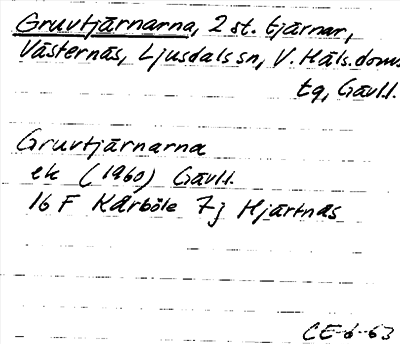 Gruvtjärnarna, 2 st. tjärnar,
Västernäs, Ljusdals sn, V. Häls. doms
tg, Gävl.l.
Gruvtjärnarna
ek (1960) Gävl.l.
16 F Kårböle 7j Hjärtnäs
CE-6-63